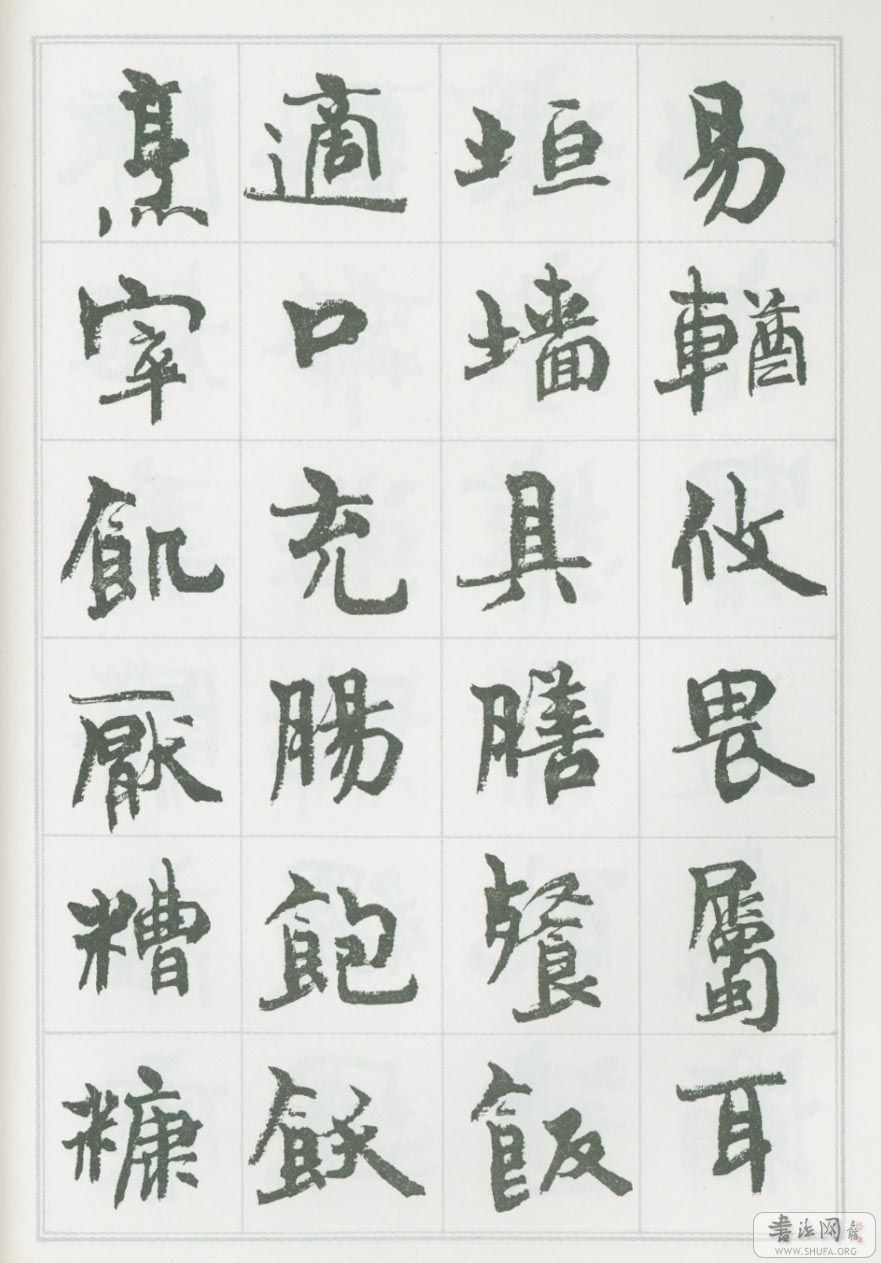 易輶攸畏屬耳
垣墻具膳飡飯
適口充腸飽飫
烹宰飢厭糟糠
書法网
WWW.SHUFA.ORG